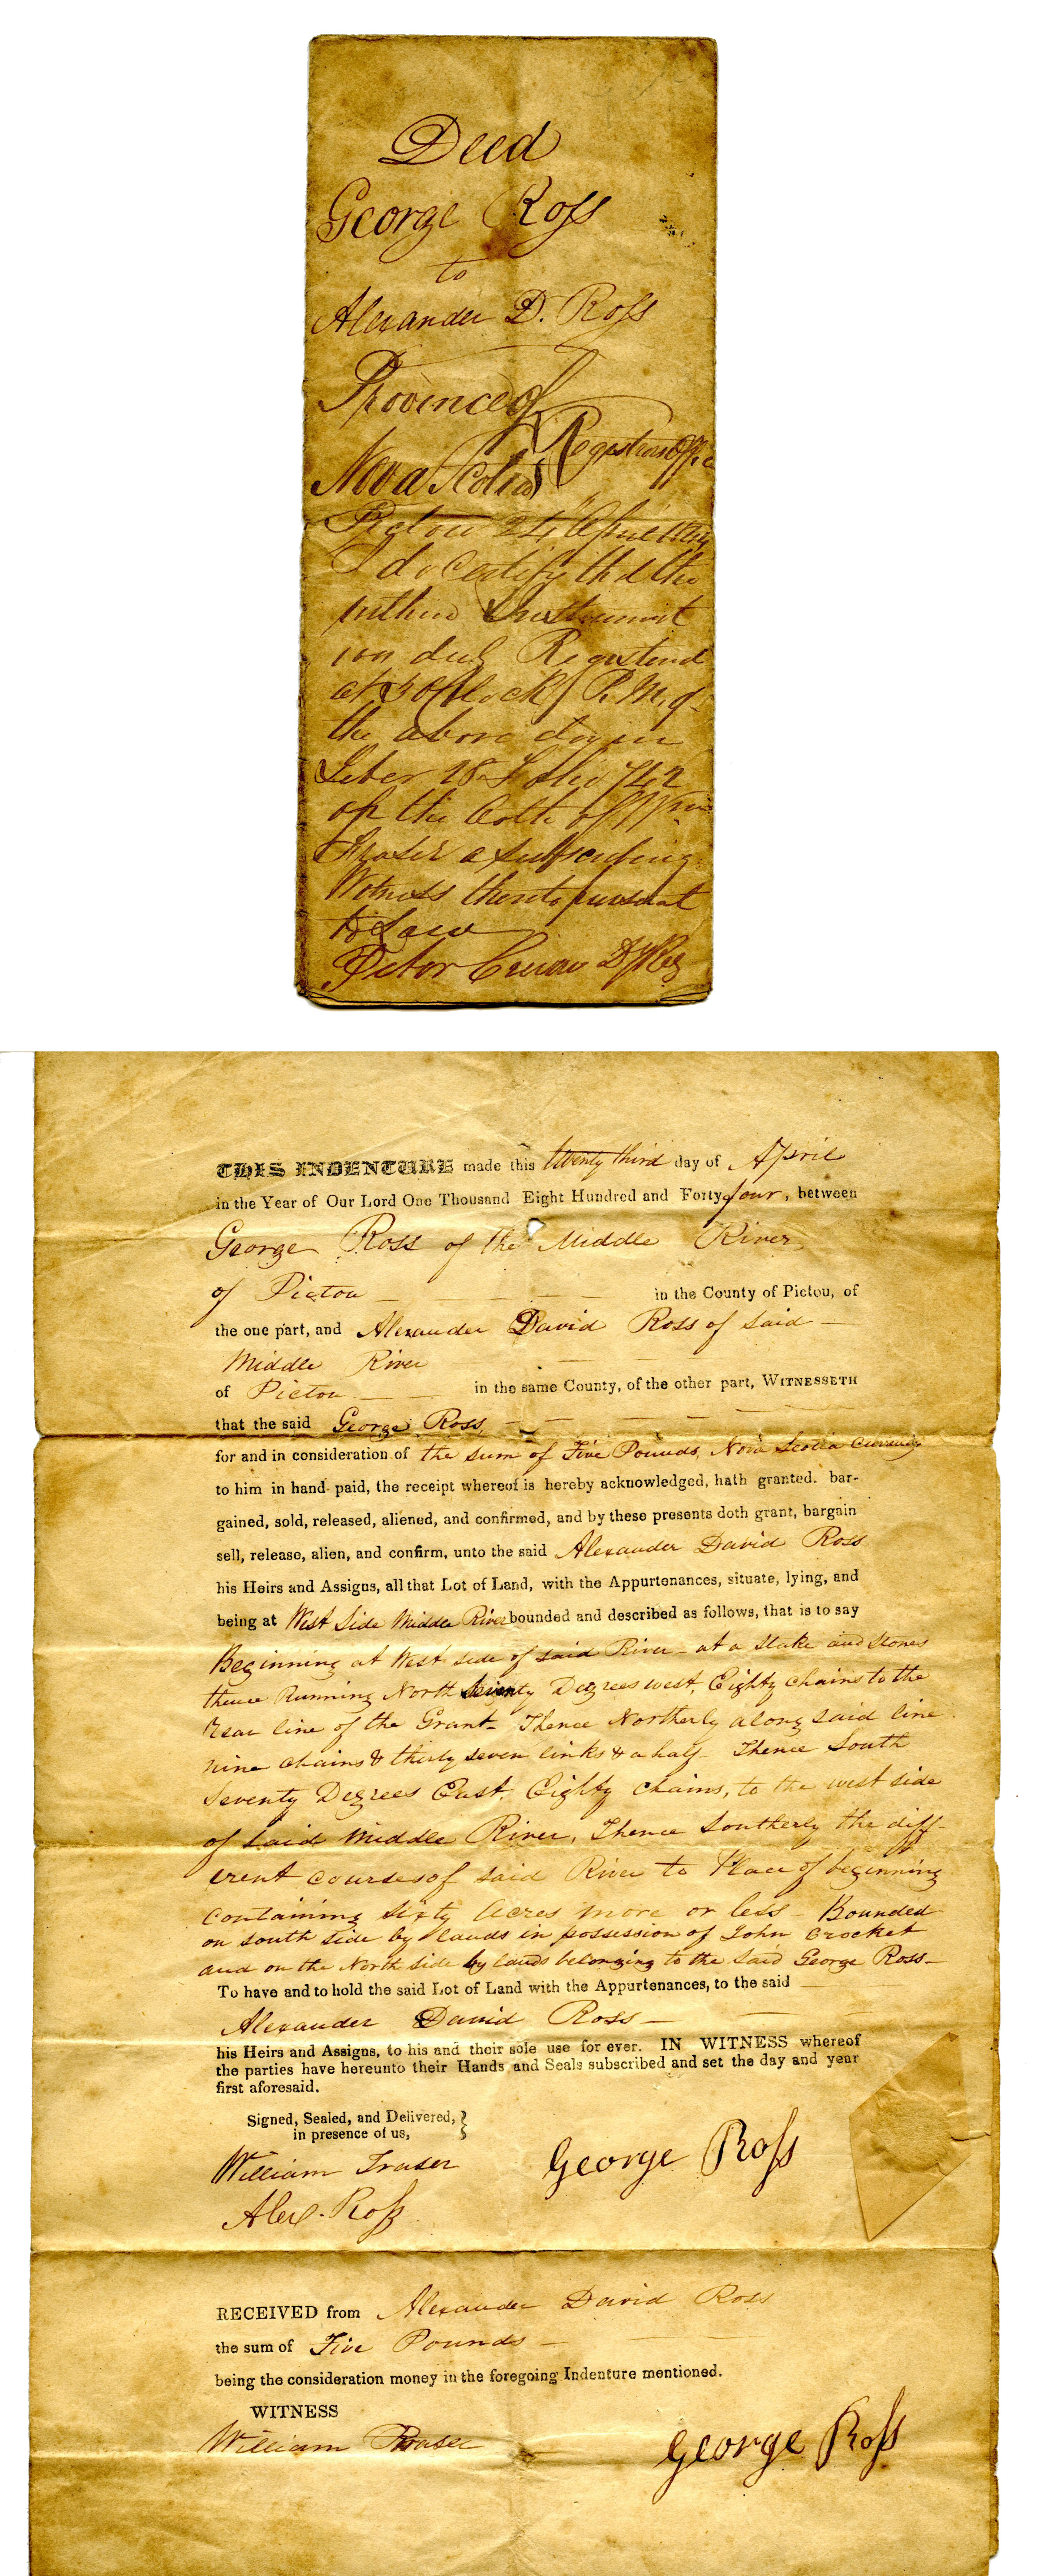 Deed
George Ross
to
Alexander D. Ross
Province of
Nova Scotia } Registrars Office
Pictou 24th April 1844
I do certify that the
within Instrument
was duly Registered
at 5 OClock P.M. of
the above day in
Liber 28 Folio 742
on the Oath of Wm
Fraser a subscribing
Witness thereto pursuant
to Law
Peter Crerar Dy Reg
THIS INDENTURE made this twenty third day of April
in the Year of Our Lord One Thousand Eight Hundred and Forty four, between
George Ross of the Middle River
of Pictou in the County of Pictou, of
the one part, and Alexander David Ross of Said
Middle River
of Pictou in the same County, of the other part, WITNESSETH
that the said George Ross,
for and in consideration of the sum of Five Pounds, Nova Scotia Currency
to him in hand paid, the receipt whereof is hereby acknowledged, hath granted. bar-
gained, sold, released, aliened, and confirmed, and by these presents doth grant, bargain
sell, release, alien, and confirm, unto the said Alexander David Ross
his Heirs and Assigns, all that Lot of Land, with the Appurtenances, situate, lying, and
being at West Side Middle River bounded and described as follows, that is to say
Beginning at West side of said River - at a Stake and Stones
thence Running North Seventy Degrees west, Eighty chains to the
rear line of the Grant - Thence Northerly along said line
nine chains & thirty seven links & a half - Thence South
Seventy Degrees East, Eighty chains, to the west side
of said Middle River, Thence Southerly the diff-
erent courses of said River to Place of beginning
containing Sixty Acres more or less - Bounded
on south side by lands in possession of John Crocket
and on the North side by lands belonging to the said George Ross -
To have and to hold the said Lot of Land with the Appurtenances, to the said
Alexander David Ross -
his Heirs and Assigns, to his and their sole use for ever. IN WITNESS whereof
the parties have hereunto their Hands and Seals subscribed and set the day and year
first aforesaid.
Signed, Sealed, and Delivered, }
in presence of us,
William Fraser
George Ross
Alex. Ross
RECEIVED from Alexander David Ross
the sum of Five Pounds -
being the consideration money in the foregoing Indenture mentioned.
WITNESS
William Fraser
George Ross